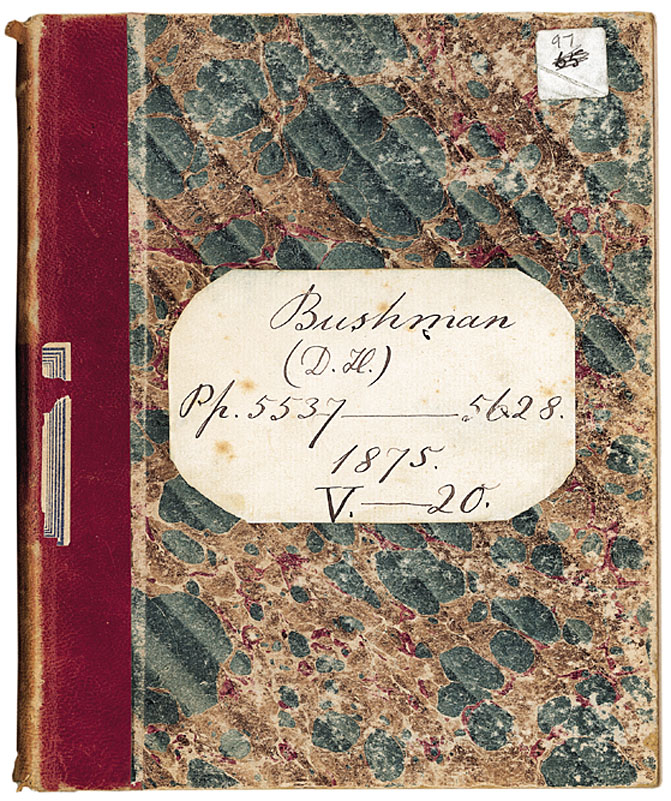 97
65
Bushman
(D. H.)
Pp. 5537 — 5628.
1875.
V. — 20.